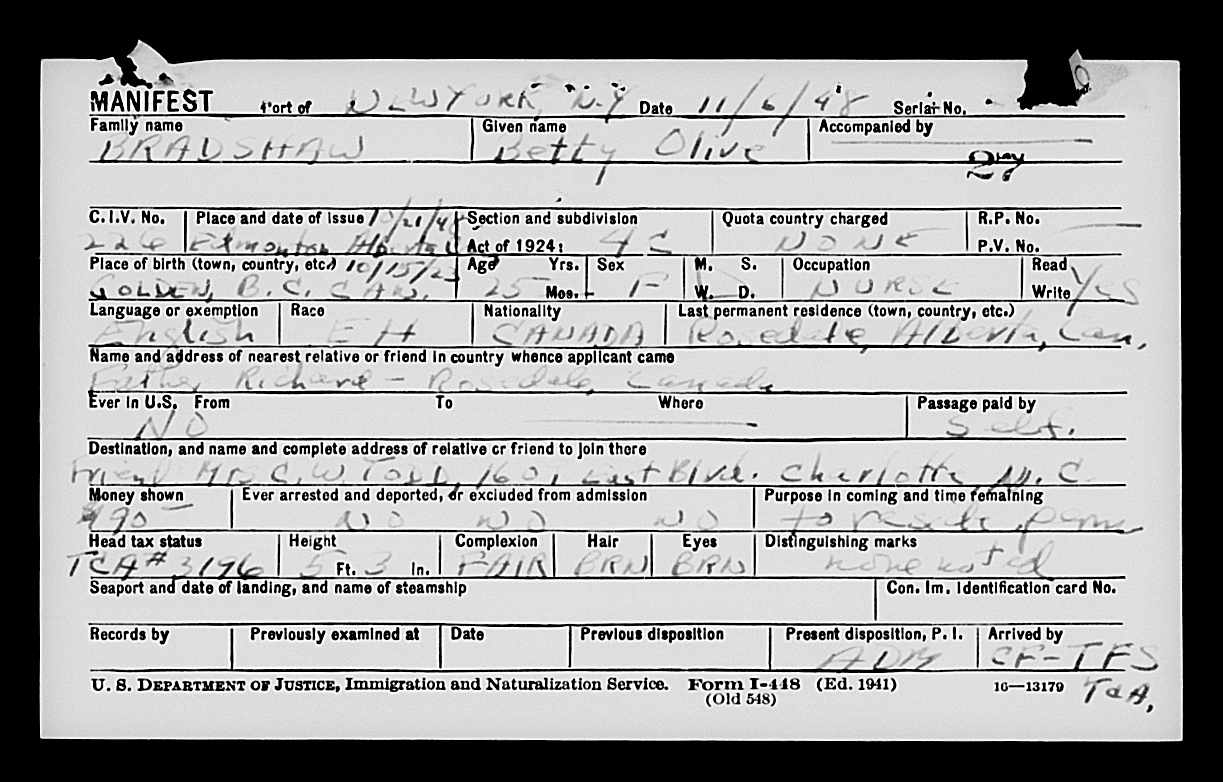 MANIFEST Port of NEW YORK, N.Y Date 11/6/48 Serial No.
Family name Given name Accompanied by
BRADSHAW Betty Olive
C.I.V. No. Place and date of issue 10/21/48 Section and subdivision Quota country charged R.P. No.
226 Edmonton Alberta Act of 1924: 4 C NONE P.V. No.
Place of birth (town, country, etc.) 10/15/23 Age Yrs. Sex M. S. Occupation Read
GOLDEN, B.C. CAN. 25 Mos. F W. D. NURSE Write Yes
Language or exemption Race Nationality Last permanent residence (town, country, etc.)
English EH CANADA Rosedale, Alberta, Can.
Name and address of nearest relative or friend in country whence applicant came
Father Richard - Rosedale, Canada
Ever in U.S. From To Where Passage paid by
NO Self.
Destination, and name and complete address of relative or friend to join there
Friend Mrs C.W. Todd, 1601 East Blvd. Charlotte, N.C.
Money shown Ever arrested and deported, or excluded from admission Purpose in coming and time remaining
$190 NO NO NO to reside, perm
Head tax status Height Complexion Hair Eyes Distinguishing marks
TCA# 3196 5 Ft. 3 In. FAIR BRN BRN none noted
Seaport and date of landing, and name of steamship Con. Im. Identification card No.
Records by Previously examined at Date Previous disposition Present disposition, P. I. Arrived by
ADM CF-TFS
U. S. DEPARTMENT OF JUSTICE, Immigration and Naturalization Service. Form I-448 (Ed. 1941) 16—13179 TCA,
(Old 548)